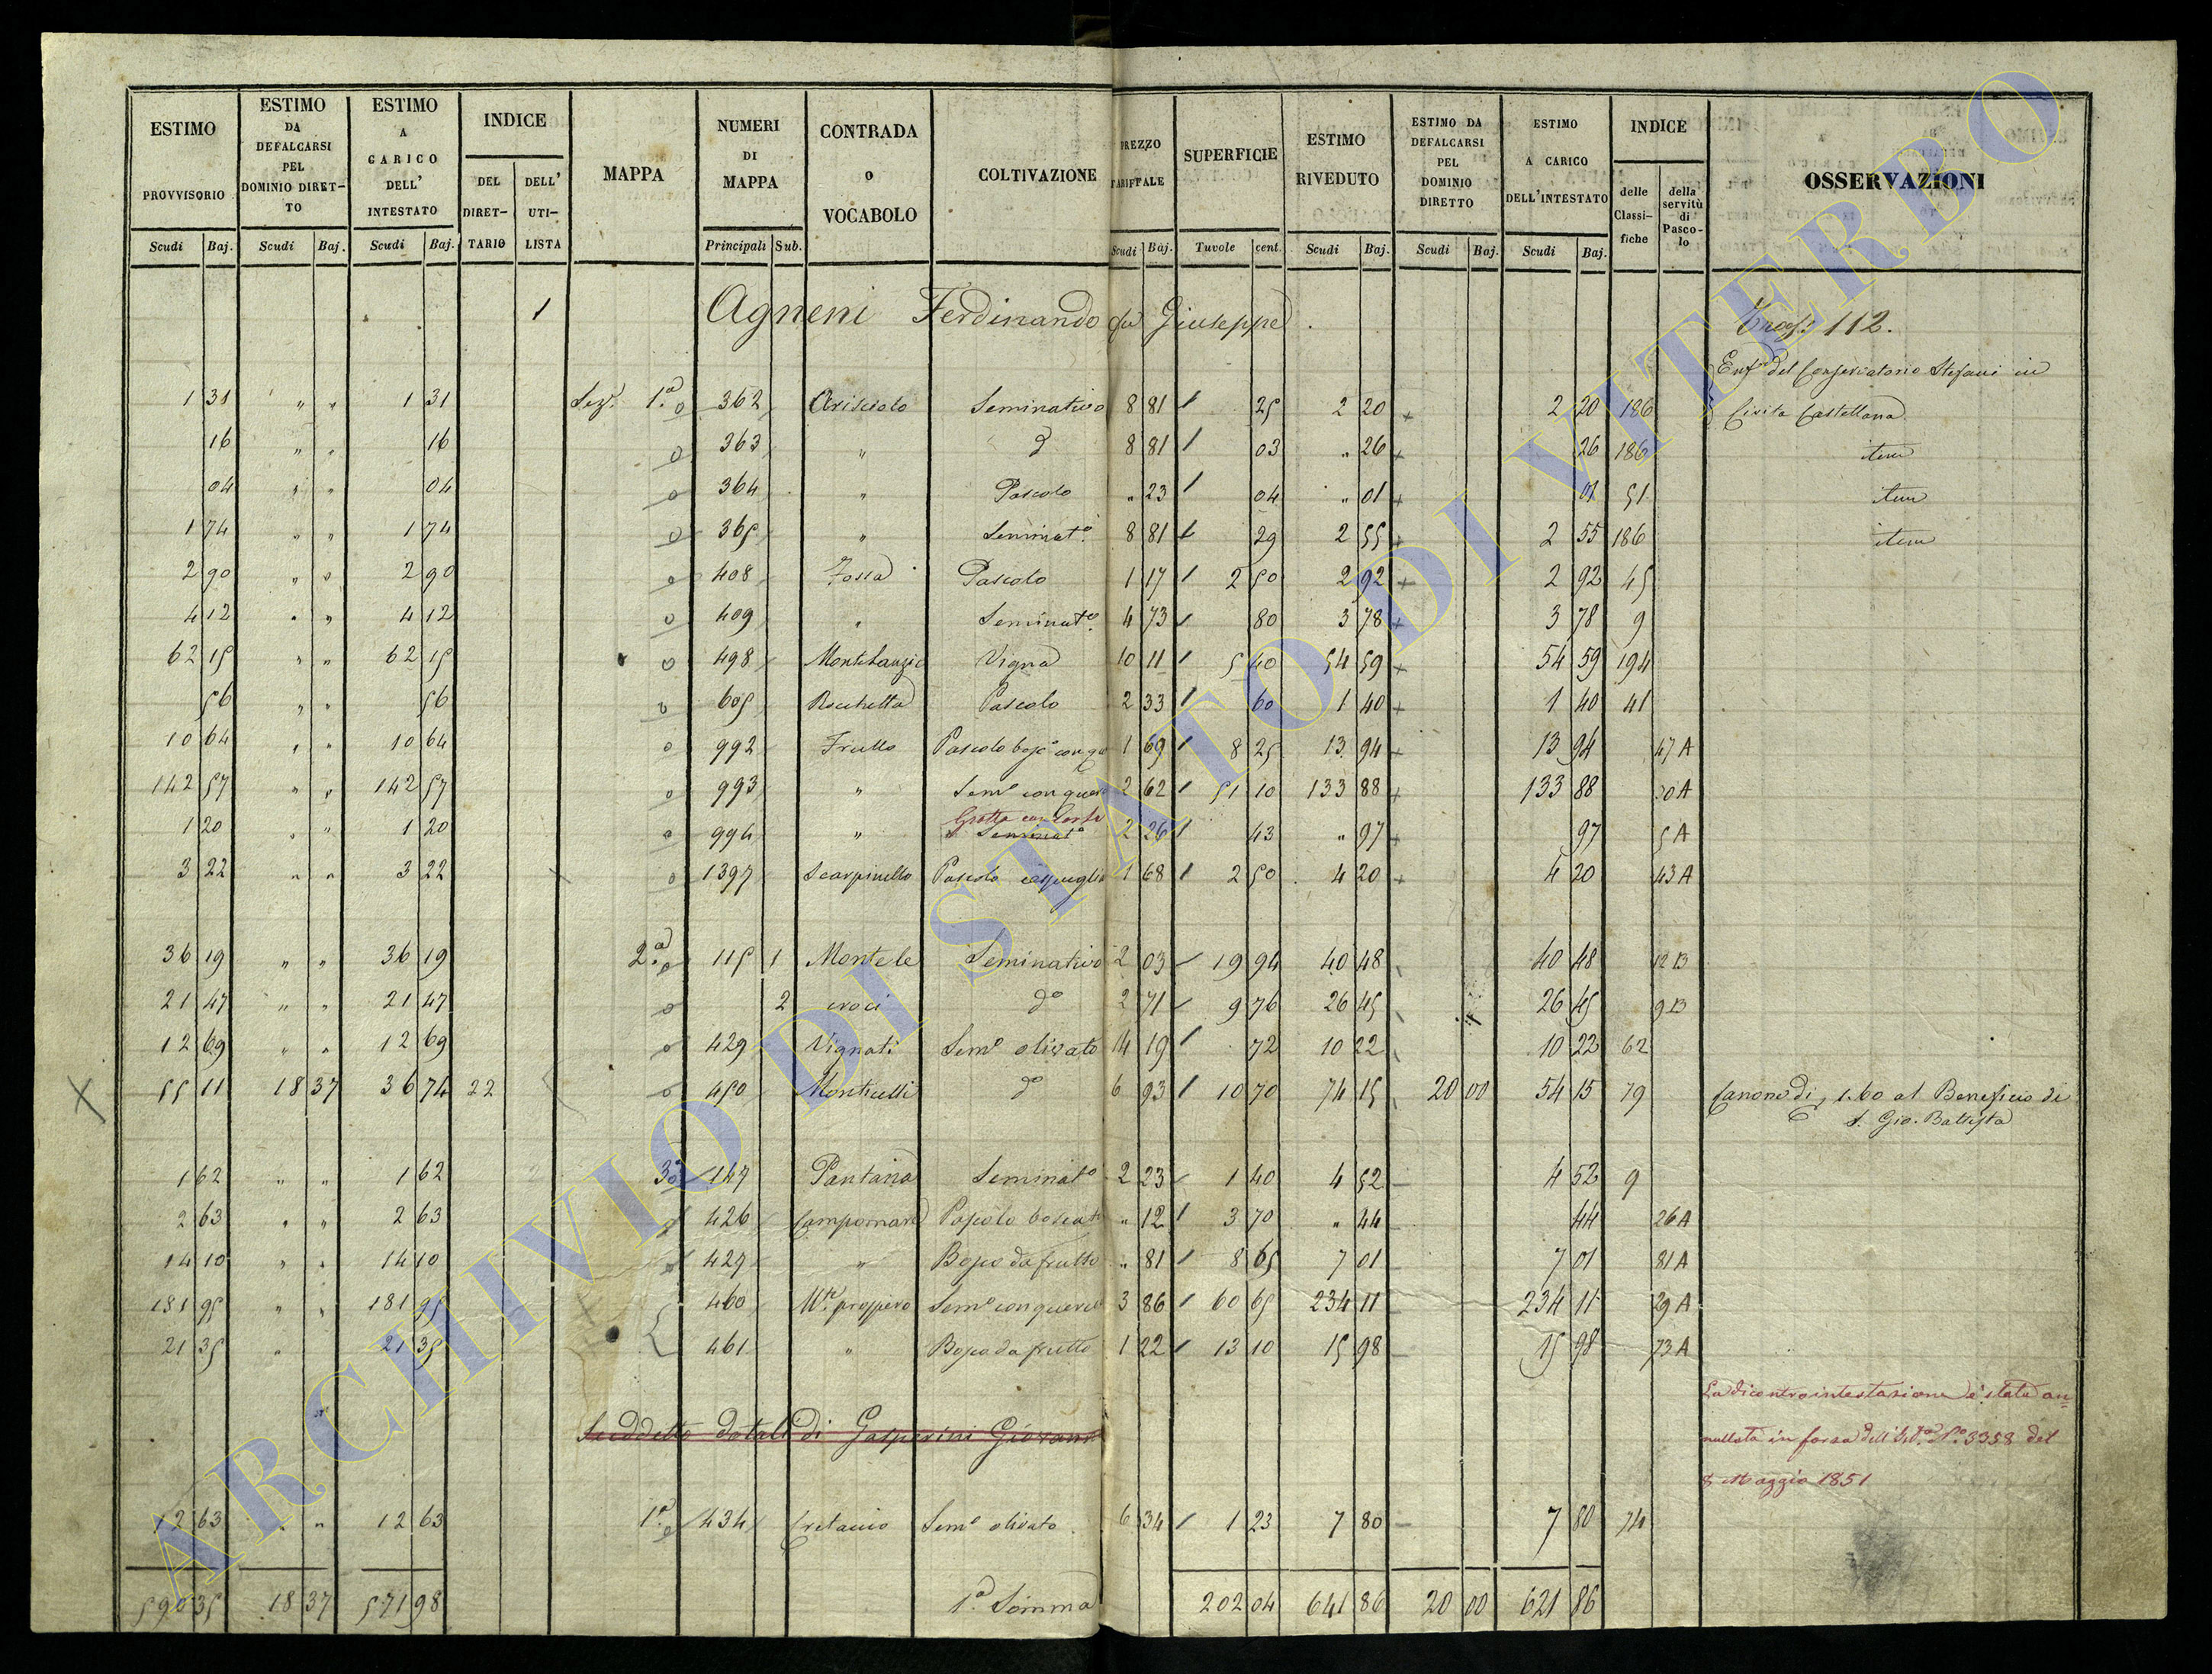 ESTIMO PROVVISORIO Scudi Baj.
ESTIMO DA DEFALCARSI PEL DOMINIO DIRETTO Scudi Baj.
ESTIMO A CARICO DELL' INTESTATO Scudi Baj.
INDICE DEL DIRETTARIO DELL' UTILISTA
MAPPA
NUMERI DI MAPPA Principali Sub.
CONTRADA O VOCABOLO
COLTIVAZIONE
PREZZO TARIFFALE Scudi Baj.
SUPERFICIE Tavole cent.
ESTIMO RIVEDUTO Scudi Baj.
ESTIMO DA DEFALCARSI PEL DOMINIO DIRETTO Scudi Baj.
ESTIMO A CARICO DELL'INTESTATO Scudi Baj.
INDICE delle Classifiche della servitù di Pascolo
OSSERVAZIONI
1 Agneni Ferdinando fu Giuseppe 112.
del Conservatorio Stefani in
1 31 " " 1 31 Sez. 1.a 362 Arisciolo Seminativo 8 81 25 2 20 2 20 186 Civita Castellana
16 " " 16 363 " d 8 81 03 " 26 26 186 item
04 " " 04 364 " Pascolo " 23 04 " 01 01 51 item
1 74 " " 1 74 365 " Seminat.o 8 81 29 2 55 2 55 186 item
2 90 " " 2 90 408 Fossa Pascolo 1 17 2 50 2 92 2 92 45
4 12 " " 4 12 409 " Seminat.o 4 73 80 3 78 3 78 9
62 15 " " 62 15 498 Vigna 10 11 5 40 54 59 54 59 194
56 " " 56 605 Rocchetta Pascolo 2 33 60 1 40 1 40 41
10 64 " " 10 64 992 Frullo Pascolo bosc.o con que 1 69 8 25 13 94 13 94 47 A
142 57 " " 142 57 993 " Sem.o con querc 2 62 51 10 133 88 133 88 30 A
Grotta con Corte
1 20 " " 1 20 994 " Seminat.o 2 26 43 " 97 97 5 A
3 22 " " 3 22 1397 Scarpinello Pascolo cespuglia 1 68 2 50 4 20 4 20 43 A
36 19 " " 36 19 2.a 115 1 Monte le Seminativo 2 03 19 94 40 48 40 48 12 B
21 47 " " 21 47 2 croci d.o 2 71 9 76 26 45 26 45 9 B
12 69 " " 12 69 429 Vignali Sem.o olivato 14 19 72 10 22 10 22 62
55 11 18 37 36 74 22 450 Monticelli d.o 6 93 10 70 74 15 20 00 54 15 79 Canone di 1.60 al Beneficio di
S. Gio. Battista
1 62 " " 1 62 3.a 147 Pantana Seminat.o 2 23 1 40 4 52 4 52 9
2 63 " " 2 63 426 Campomare Pascolo boscato " 12 3 70 " 44 44 26 A
14 10 " " 14 10 427 " Bosco da frutto " 81 8 65 7 01 7 01 81 A
181 95 " " 181 95 460 M.e prospero Sem.o con querce 3 86 60 65 234 11 234 11 29 A
21 35 " 21 35 461 " Bosco da frutto 1 22 13 10 15 98 15 98 73 A
La dicontrointestazione è stata an=
Suddetto dotali di Gasperini Giovanni
nullata in forza dell' N.o 3358 del
8 Maggio 1851
12 63 " " 12 63 1.a 434 Cretaccio Sem.o olivato 6 34 1 23 7 80 7 80 74
590 35 18 37 571 98 1.a Somma 202 04 641 86 20 00 621 86
ARCHIVIO DI STATO DI VITERBO